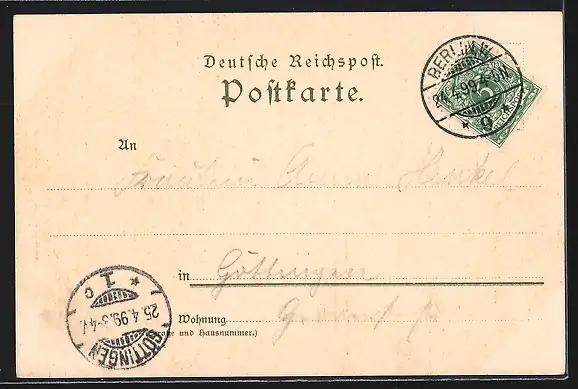 Deutsche Reichspost.
Postkarte.
BERLIN W
24.4.99. 4-5N.
* 9 *
5
An
Fräulein Anna Henkel
in Göttingen
Wohnung
(Straße und Hausnummer.)
GÖTTINGEN
25.4.99. 3-4
* 1 c